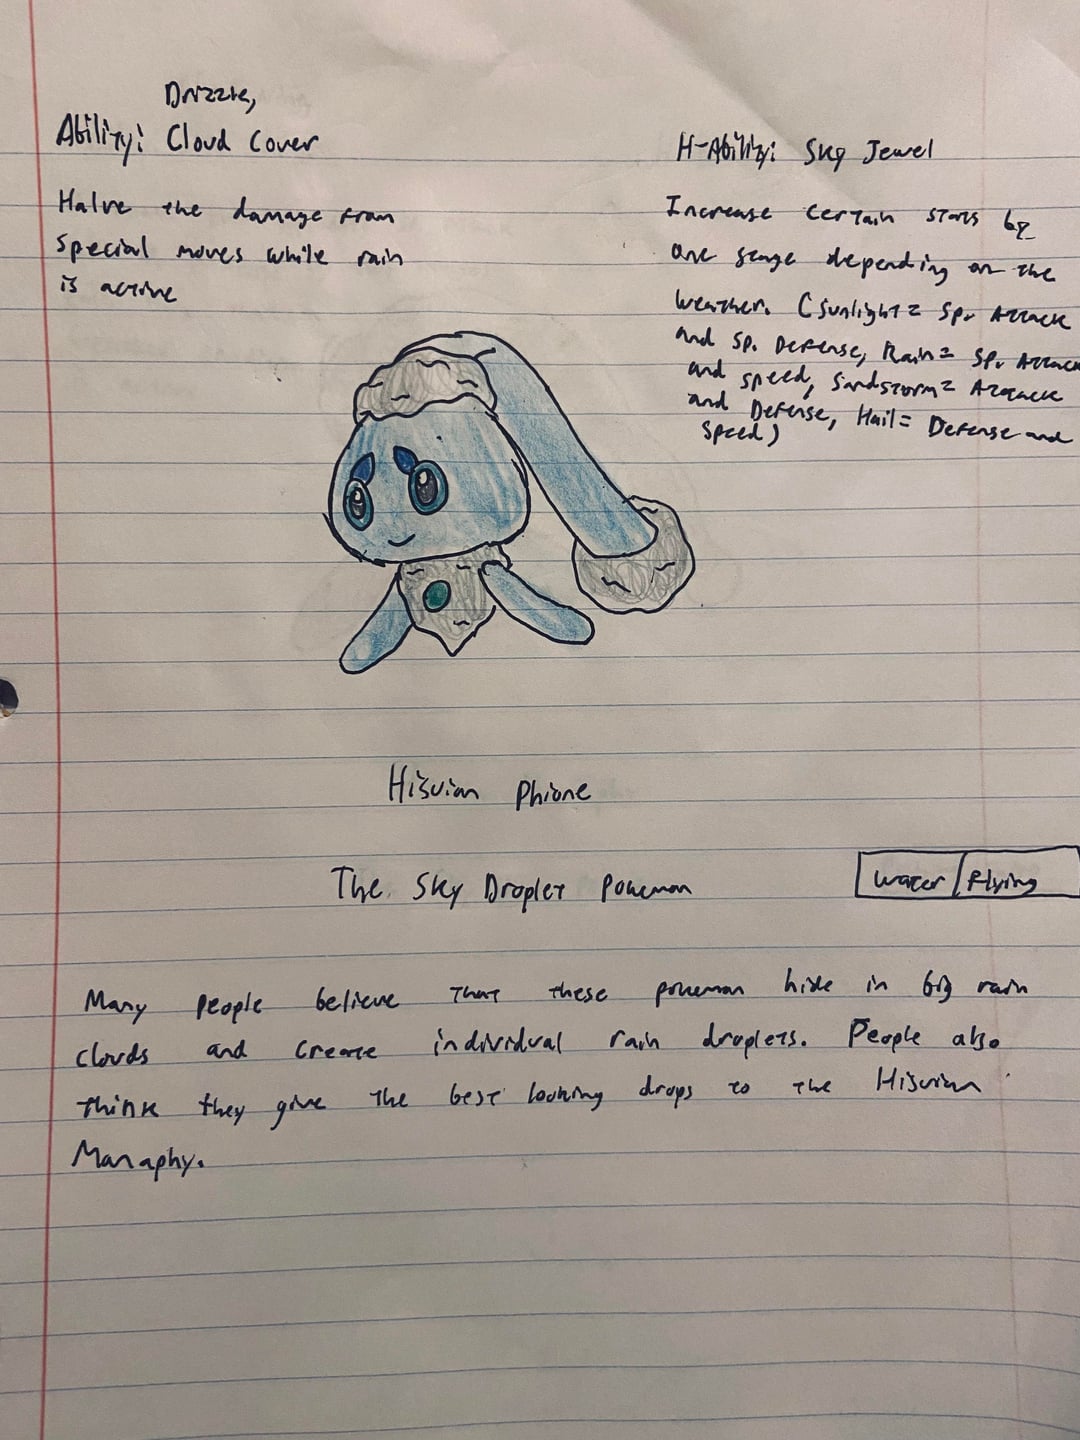 Drizzle,
Ability: Cloud Cover
Halve the damage from
special moves while rain
is active
H-Ability: Sky Jewel
Increase certain stats by
one stage depending on the
weather. (Sunlight = Sp. Attack
and Sp. Defense, Rain = Sp. Attack
and speed, Sandstorm = Attack
and Defense, Hail = Defense and
Speed)
Hisuian Phione
The Sky Droplet Pokemon
Water/Flying
Many people believe that these pokemon hide in big rain
clouds and create individual rain droplets. People also
think they give the best looking drops to the Hisuian
Manaphy.